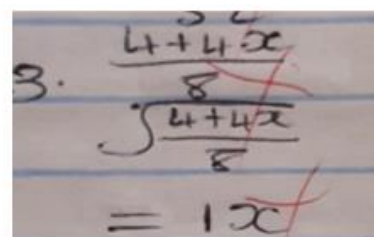 3. 4+4x/8
∫ 4+4x/8
= 1x